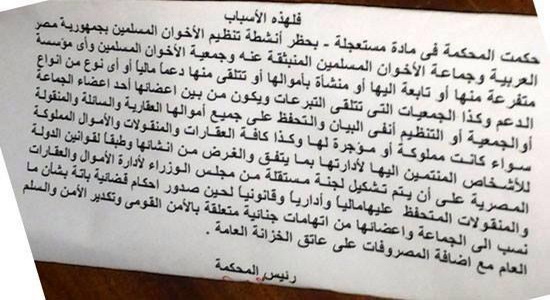 فلهذه الأسباب
حكمت المحكمة فى مادة مستعجلة - بحظر أنشطة تنظيم الأخوان المسلمين بجمهورية مصر
العربية وجماعة الأخوان المسلمين المنبثقة عنه وجمعية الأخوان المسلمين وأى مؤسسة
متفرعة منها أو تابعة إليها أو منشأة بأموالها أو تتلقى منها دعماً مالياً أو أى نوع من انواع
الدعم وكذا الجمعيات التى تتلقى التبرعات ويكون من بين اعضائها أحد اعضاء الجماعة
أوالجمعية أو التنظيم أنفى البيان والتحفظ على جميع أموالها العقارية والسائلة والمنقولة
سواء كانت مملوكة أو مؤجرة لها وكذا كافة العقارات والمنقولات والأموال المملوكة
للأشخاص المنتمين اليها لأدارتها بما يتفق والغرض من انشائها وطبقاً لقوانين الدولة
المصرية على أن يتم تشكيل لجنة مستقلة من مجلس الوزراء لأدارة الأموال والعقارات
والمنقولات المتحفظ عليهامالياً وأدارياً وقانونياً لحين صدور احكام قضائية باتة بشأن ما
نسب الى الجماعة واعضائها من اتهامات جنائية متعلقة بالأمن القومى وتكدير الأمن والسلم
العام مع اضافة المصروفات على عاتق الخزانة العامة .
رئيس المحكمة